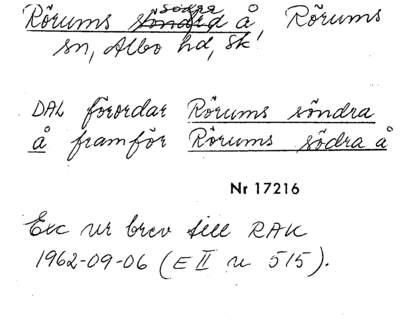 Rörums södra å, Rörums
sn, Albo hd, Sk.
DAL förordar Rörums söndra
å framför Rörums södra å
Nr 17216
Exc ur brev till RAK
1962-09-06 (E II u 515).